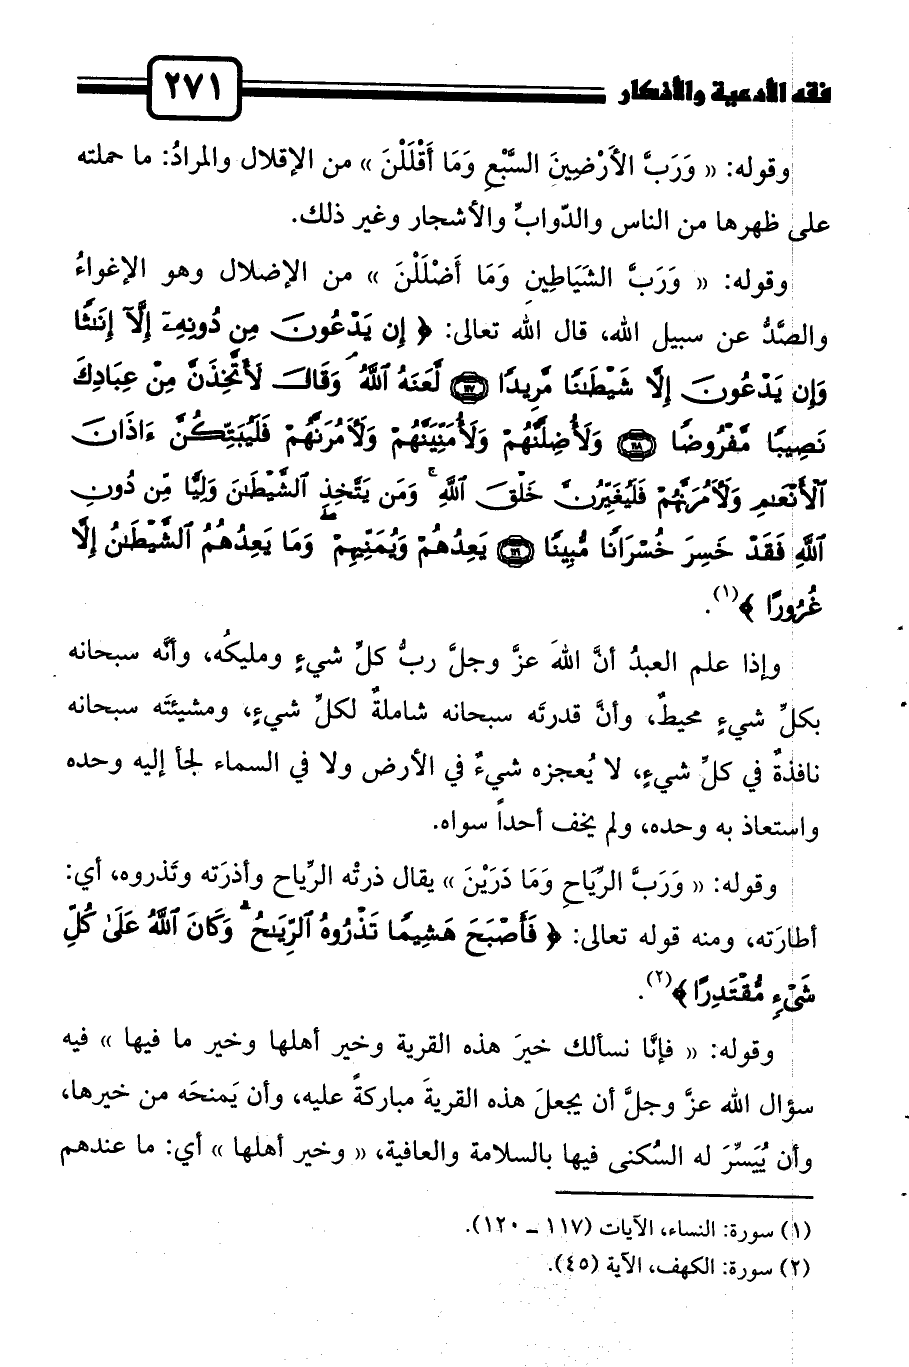 فقه الأدعية والأذكار ٢٧١
وقوله: « وَرَبَّ الأَرْضِينَ السَّبْعِ وَمَا أَقْلَلْنَ » من الإقلال والمرادُ: ما حملته
على ظهرها من الناس والدّوابِّ والأشجار وغير ذلك.
وقوله: « وَرَبَّ الشَيَاطِينِ وَمَا أَضْلَلْنَ » من الإضلال وهو الإغواءُ
والصَّدُّ عن سبيل الله، قال الله تعالى: ﴿ إِن يَدْعُونَ مِن دُونِهِۦٓ إِلَّآ إِنَٰثًا
وَإِن يَدْعُونَ إِلَّا شَيْطَٰنًا مَّرِيدًا ١١٧ لَّعَنَهُ ٱللَّهُ ۘ وَقَالَ لَأَتَّخِذَنَّ مِنْ عِبَادِكَ
نَصِيبًا مَّفْرُوضًا ١١٨ وَلَأُضِلَّنَّهُمْ وَلَأُمَنِّيَنَّهُمْ وَلَءَامُرَنَّهُمْ فَلَيُبَتِّكُنَّ ءَاذَانَ
ٱلْأَنْعَٰمِ وَلَءَامُرَنَّهُمْ فَلَيُغَيِّرُنَّ خَلْقَ ٱللَّهِ ۚ وَمَن يَتَّخِذِ ٱلشَّيْطَٰنَ وَلِيًّا مِّن دُونِ
ٱللَّهِ فَقَدْ خَسِرَ خُسْرَانًا مُّبِينًا ١١٩ يَعِدُهُمْ وَيُمَنِّيهِمْ ۖ وَمَا يَعِدُهُمُ ٱلشَّيْطَٰنُ إِلَّا
غُرُورًا ﴾(١).
وإذا علم العبدُ أنَّ اللهَ عزَّ وجلَّ ربُّ كلِّ شيءٍ ومليكُه، وأنَّه سبحانه
بكلِّ شيءٍ محيطٌ، وأنَّ قدرتَه سبحانه شاملةٌ لكلِّ شيءٍ، ومشيئتَه سبحانه
نافذةٌ في كلِّ شيءٍ، لا يُعجزه شيءٌ في الأرض ولا في السماء لجأ إليه وحده
واستعاذ به وحده، ولم يخف أحداً سواه.
وقوله: « وَرَبَّ الرِّيَاحِ وَمَا ذَرَيْنَ » يقال ذرتْه الرِّياح وأذرَته وتَذروه، أي:
أطارَته، ومنه قوله تعالى: ﴿ فَأَصْبَحَ هَشِيمًا تَذْرُوهُ ٱلرِّيَٰحُ ۗ وَكَانَ ٱللَّهُ عَلَىٰ كُلِّ
شَىْءٍ مُّقْتَدِرًا ﴾(٢).
وقوله: « فإنَّا نسألك خيرَ هذه القرية وخير أهلها وخير ما فيها » فيه
سؤال الله عزَّ وجلَّ أن يجعلَ هذه القريةَ مباركةً عليه، وأن يَمنحَه من خيرها،
وأن يُيَسِّرَ له السُكنى فيها بالسلامة والعافية، « وخير أهلها » أي: ما عندهم
(١) سورة: النساء، الآيات (١١٧ ــ ١٢٠).
(٢) سورة: الكهف، الآية (٤٥).